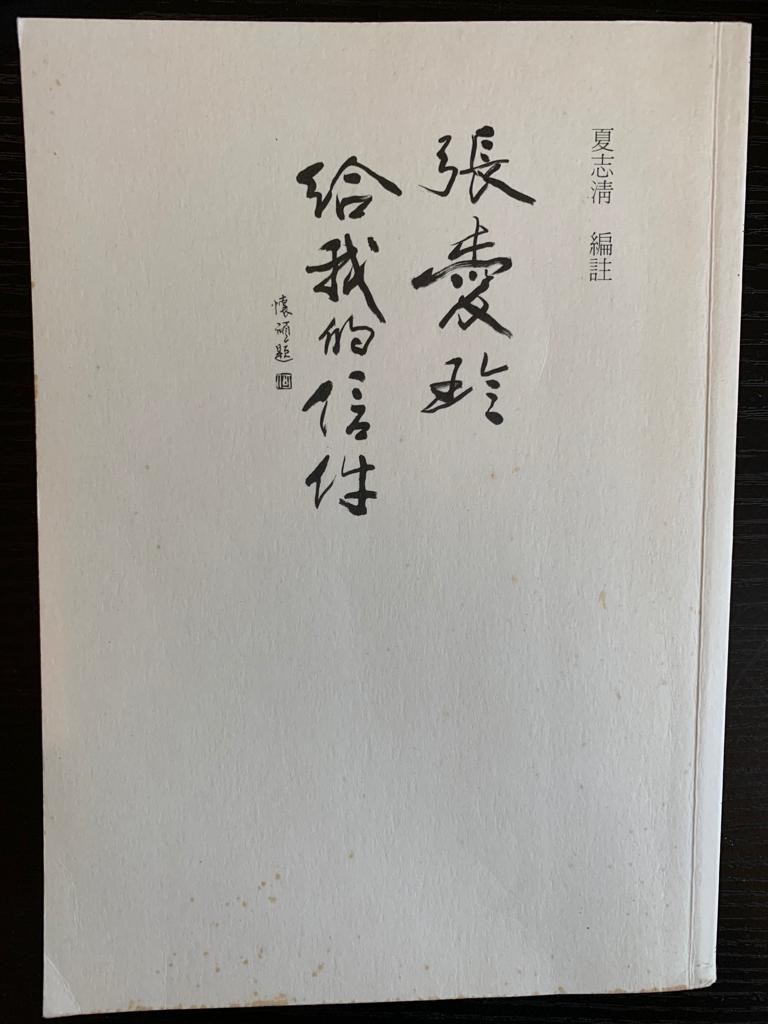 夏志清 編註
張愛玲
給我的信件
懷碩題